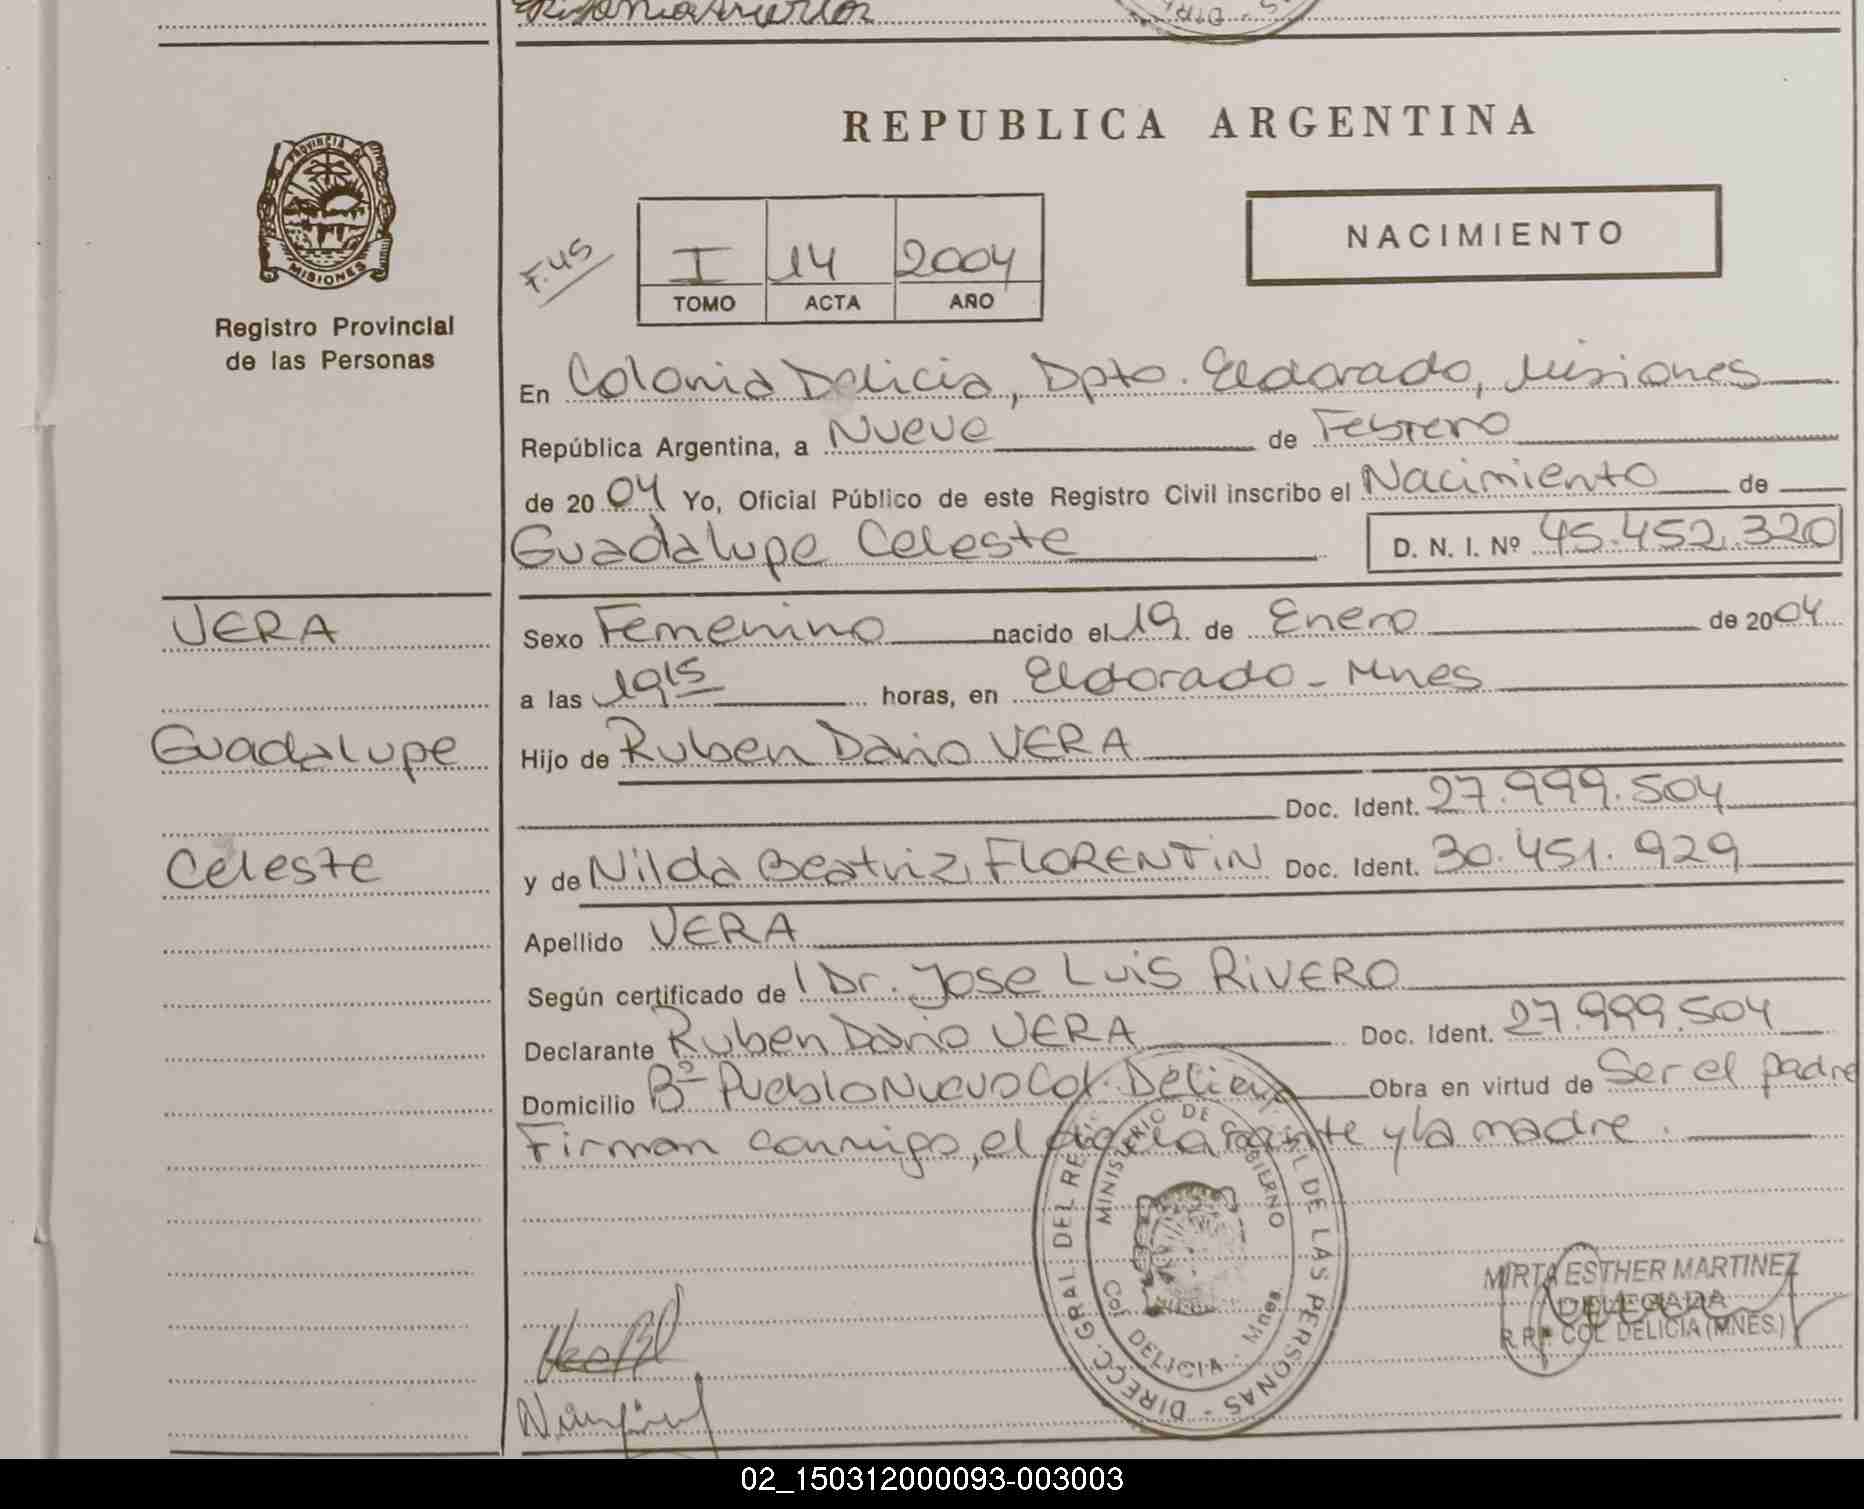 REPUBLICA ARGENTINA
PROVINCIA DE
MISIONES
Registro Provincial
de las Personas
NACIMIENTO
F.45
I 14 2004
TOMO ACTA AÑO
En Colonia Delicia, Dpto. Eldorado, Misiones
República Argentina, a Nueve de Febrero
de 2004 Yo, Oficial Público de este Registro Civil inscribo el Nacimiento de
Guadalupe Celeste D. N. I. Nº 45.452.320
VERA
Guadalupe
Celeste
Sexo Femenino nacido el 19 de Enero de 2004
a las 19 15 horas, en Eldorado - Mnes
Hijo de Ruben Dario VERA
Doc. Ident. 27.999.504
y de Nilda Beatriz FLORENTIN Doc. Ident. 30.451.929
Apellido VERA
Según certificado de Dr. Jose Luis RIVERO
Declarante Ruben Dario VERA Doc. Ident. 27.999.504
Domicilio Bº Pueblo Nuevo Col. Delicia Obra en virtud de Ser el padre
Firman conmigo, el declarante y la madre.
DIRECC. GRAL. DEL REG. DE LAS PERSONAS
MINISTERIO DE GOBIERNO
Col. DELICIA - Mnes.
MIRTA ESTHER MARTINEZ
DELEGADA
R.R.P. COL. DELICIA (MNES.)
02_150312000093-003003